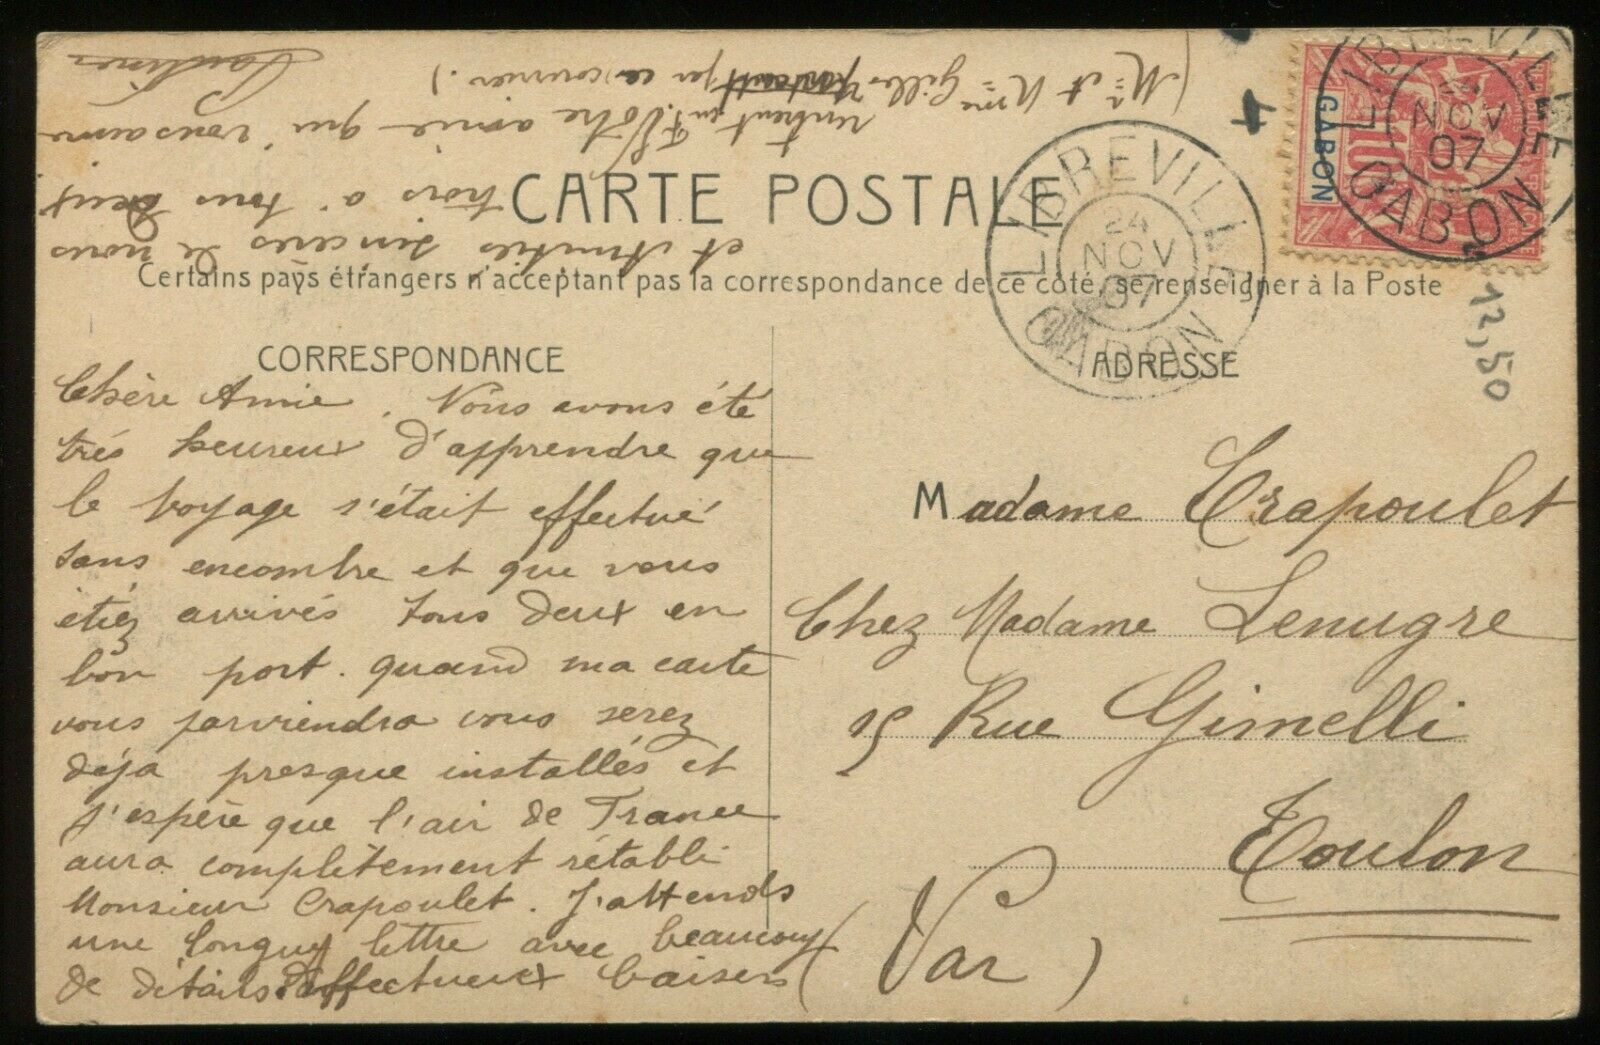 CARTE POSTALE
Certains pays étrangers n'acceptent pas la correspondance de ce côté, se renseigner à la Poste
CORRESPONDANCE
Chère Amie. Nous avons été
très heureux d'apprendre que
le voyage s'était effectué
sans encombre et que vous
étiez arrivés tous deux en
bon port. quand ma carte
vous parviendra vous serez
déja presque installés et
j'espère que l'air de France
aura complètement rétabli
Monsieur Crapoulet. J'attends
une longue lettre avec beaucoup
de détails. affectueux baisers
et Amitiés sincères de nous
trois à tous deux
Votre amie qui vous aime
Pauline
(Mr et Mme Gilles
rentrent
par ce courrier.)
ADRESSE
Madame Crapoulet
Chez Madame Lenugre
15 Rue Gimelli
Toulon
(Var)
LIBREVILLE
24
NOV
07
GABON
LIBREVILLE
NOV
07
GABON
GABON
10
12,50
4